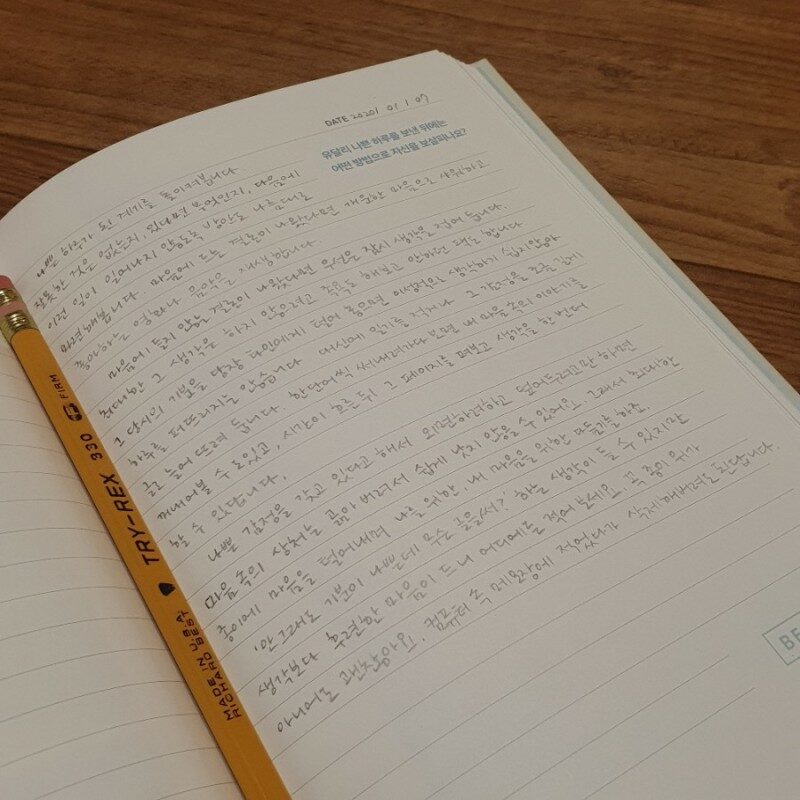 DATE 2020/ 01 / 07
유달리 나쁜 하루를 보낸 뒤에는
어떤 방법으로 자신을 보살피나요?
나쁜 하루가 된 계기를 돌이켜봅니다
잘못한 것은 없는지, 있다면 무엇인지, 다음에
이런 일이 일어나지 않도록 방안도 나름대로
마련해봅니다 마음에 드는 결론이 나왔다면 개운한 마음으로 샤워하고
좋아하는 영화나 음악을 재생합니다
마음에 들지 않는 결론이 나왔다면 우선은 잠시 생각을 접어 둡니다.
최대한 그 생각은 하지 않으려고 족욕도 해보고 안하던 땐 합니다
그 당시의 기분을 당장 타인에게 털어 놓으면 이성적으로 생각하기 쉽지않아
하루를 퍼뜨리지는 않습니다 대신에 일기를 적거나 그 감정을 조금 길게
글로 늘어 뜨려 둡니다. 한단어씩 써내려가다 보면 내 마음 속의 이야기를
꺼내어볼 수도있고, 시간이 흐른뒤 그 페이지를 펴보고 생각을 한 번더
할 수 있답니다.
나쁜 감정을 갖고 있다고 해서 외면하려하고 덮어두려고만 하면
마음 속의 상처는 곪아 버려서 쉽게 낫지 않을 수 있어요. 그래서 최대한
종이에 마음을 털어내며 나를 위한, 내 마음을 위한 다독임을 하죠.
'안그래도 기분이 나쁜데 무슨 글을써? 하는 생각이 들 수 있지만
생각보다 후련한 마음이 드니 어디에로 적어 보세요. 꼭 종이 위가
아니어도 괜찮아요. 컴퓨터 속 메모장에 적었다가 삭제해버려도된답니다.
BE
TRY-REX 330 FIRM
MADE IN U.S.A
RICHARD BEST